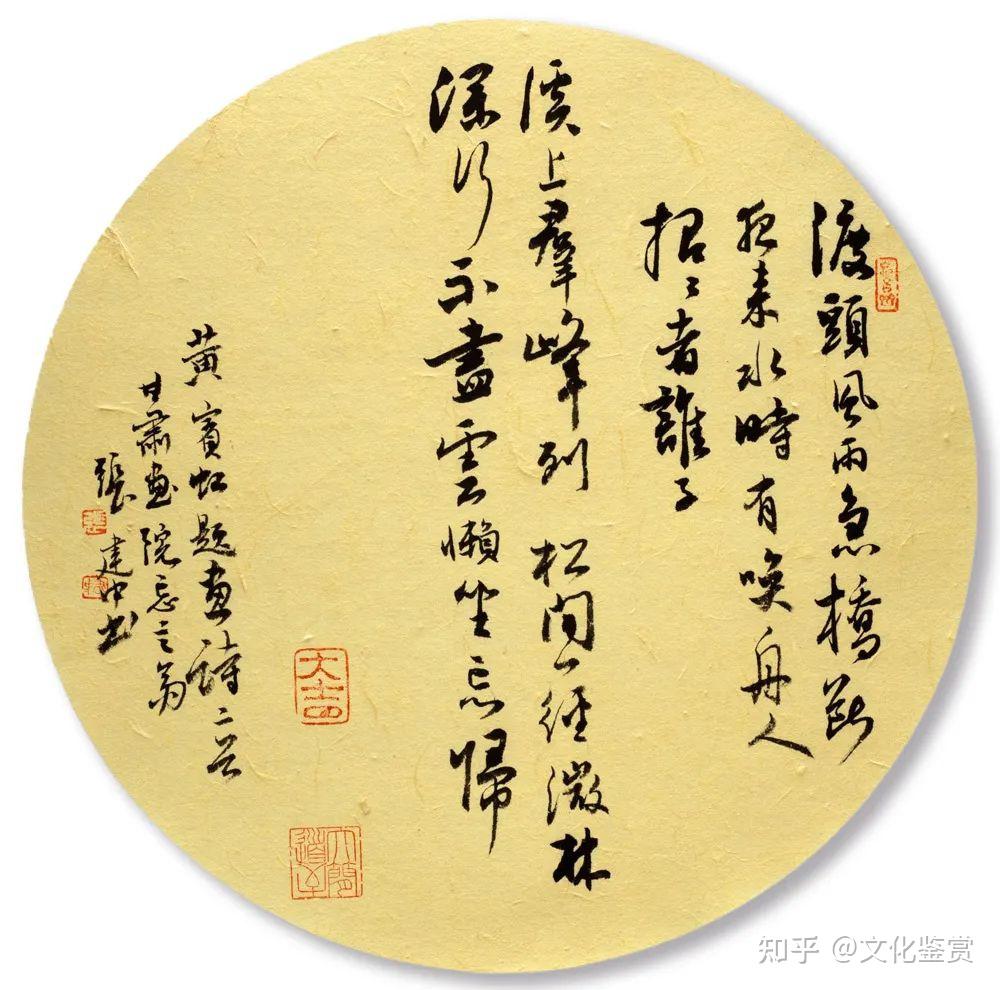 渡頭風雨急橋斷
夜來水時有喚舟人
招〻者誰子
溪上羣峰列松間一徑微林
深行不盡雲懶坐忘歸
黃賓虹題畫詩二首
甘肅畫院忘言翁
張建中書
知乎 @文化鉴赏